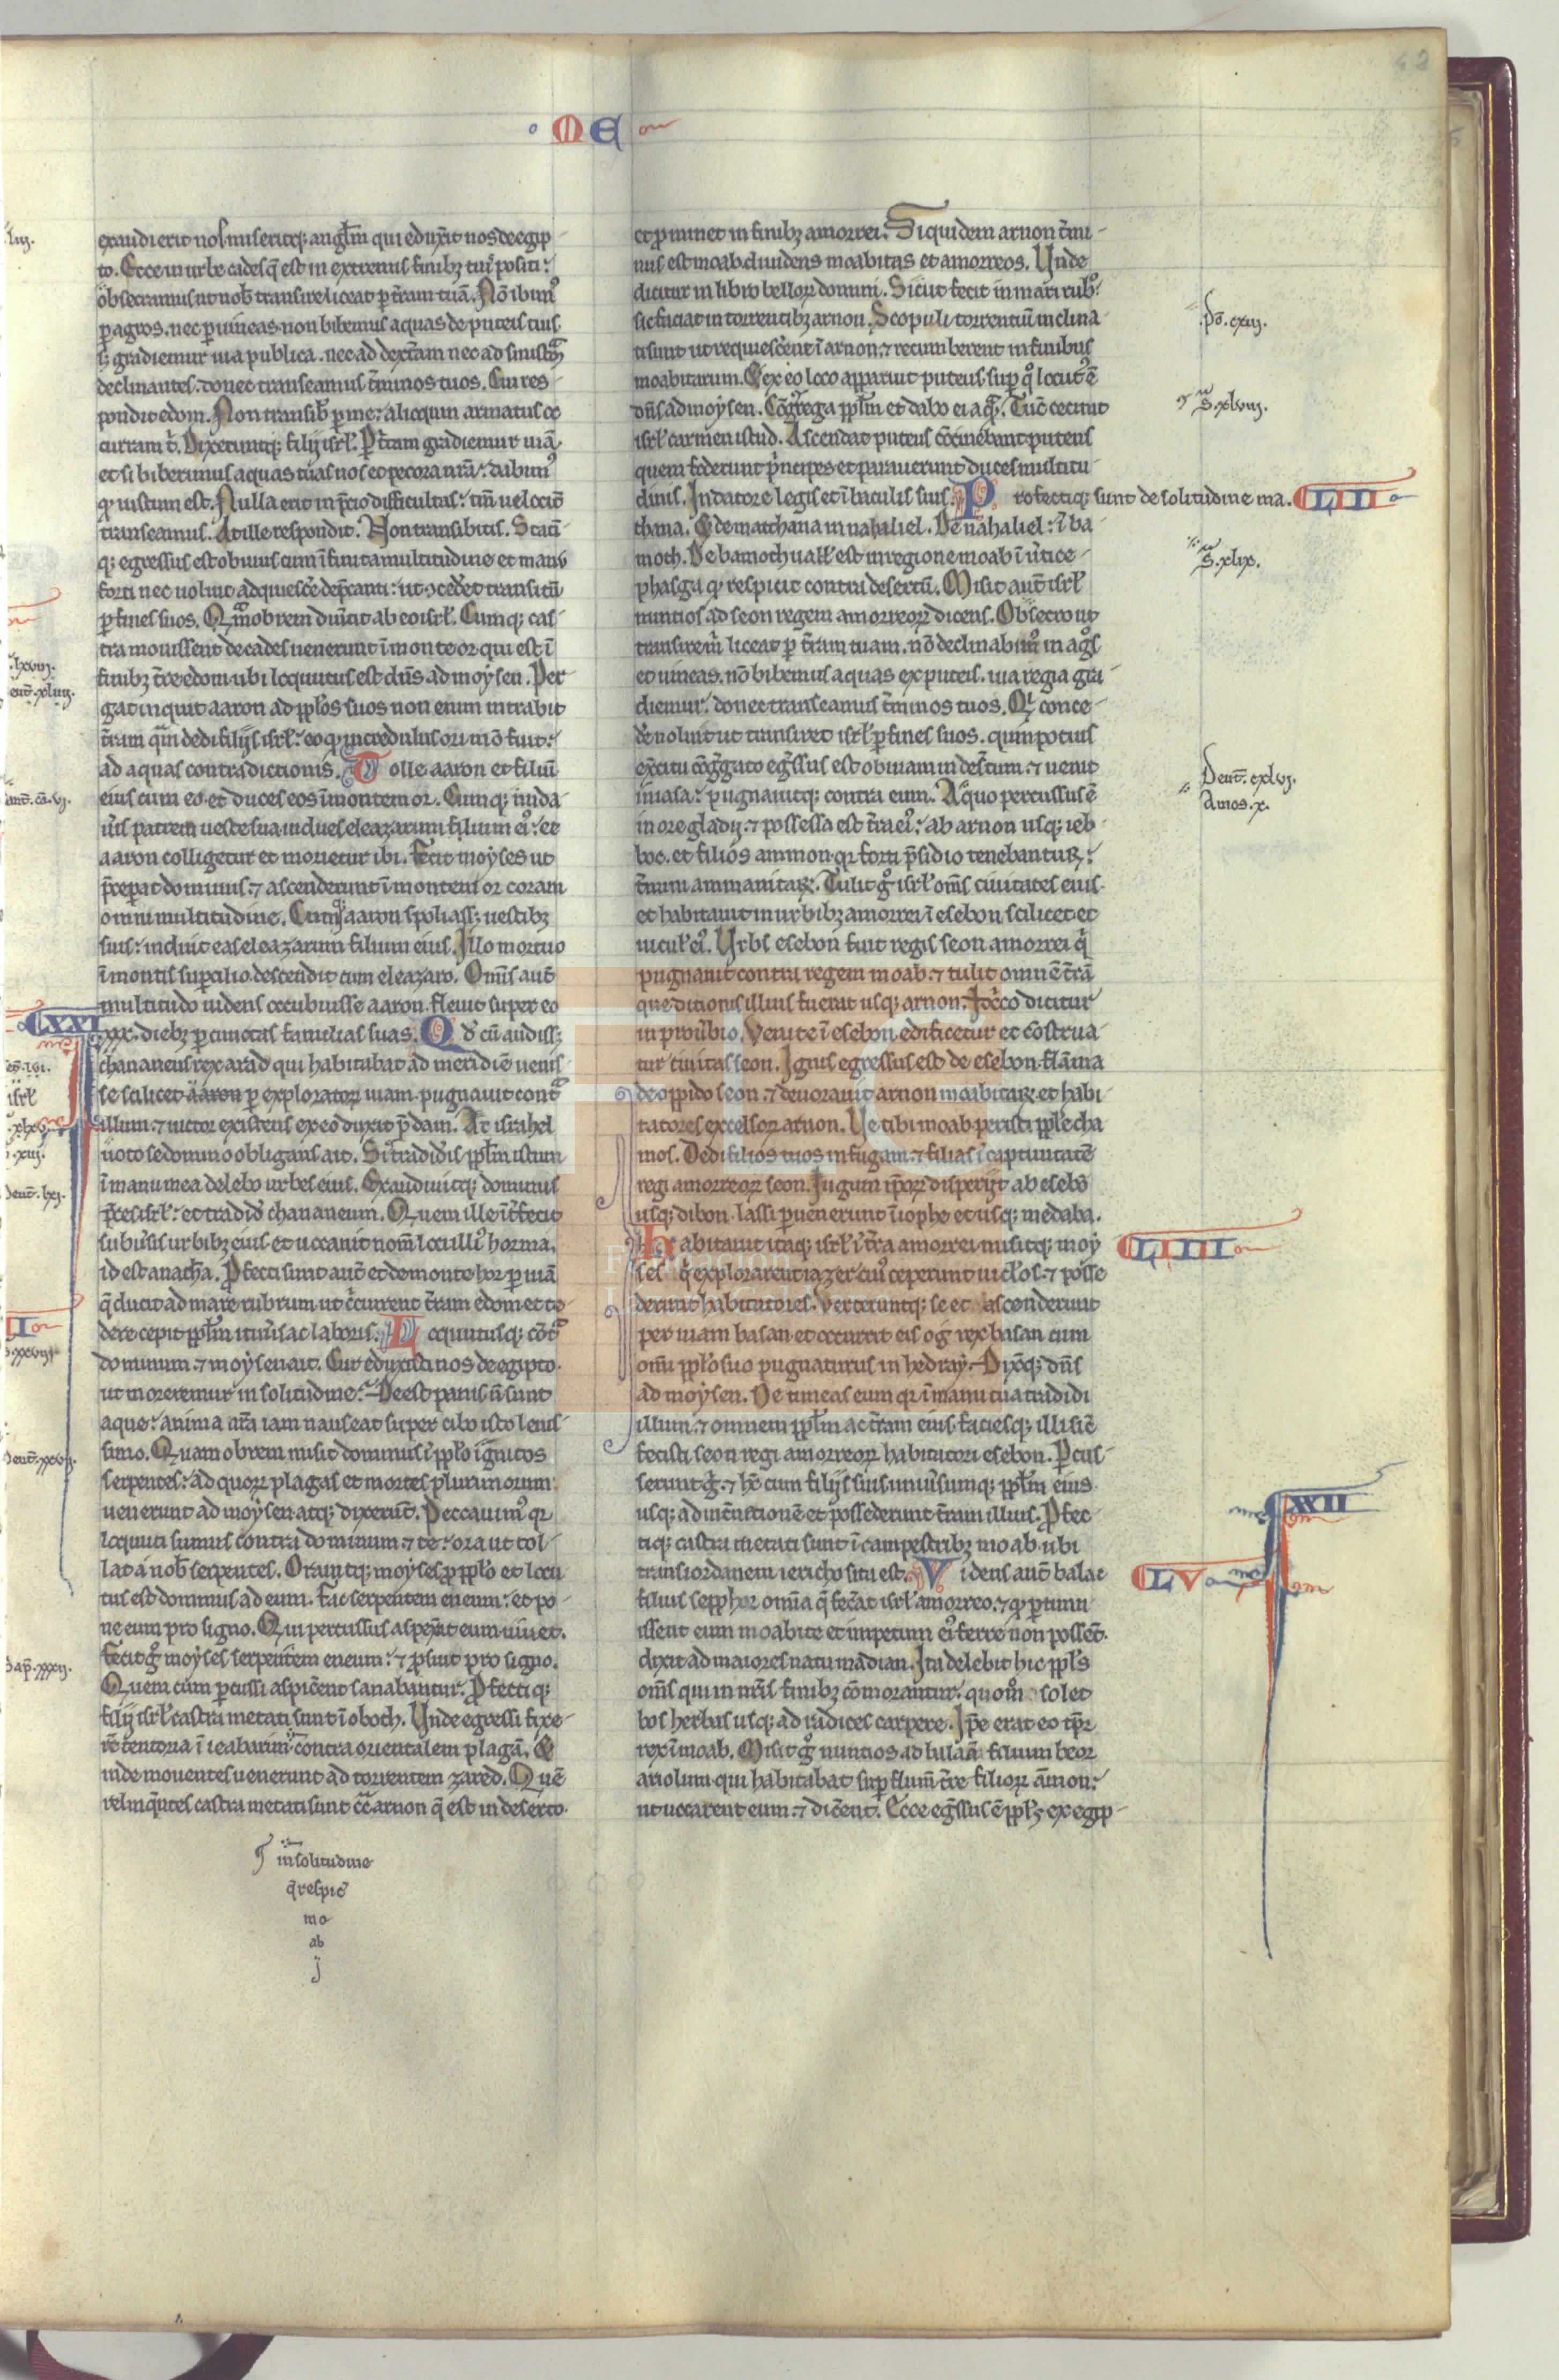 ME
exaudierit nos miseritq; angl̄m qui eduxit nos de egip-
to. Ecce in urbe cades q̄ est in extremis finibꝫ tuis positi:
obsecramus ut nob̄ transire liceat p̄ t̄ram tuā. Nō ibim᷒
ꝑ agros. nec ꝑ uineas. non bibemus aquas de puteis tuis.
sꝫ gradiemur uia publica. nec ad dext̄am nec ad sinist̄m
declinantes. donec transeamus t̄minos tuos. Cui res-
pondit edom. Non transib̄ ꝑ me: alioquin armatus oc
curram t̄. Dixeruntq; filij isrł. P̄ t̄tam gradiemur uiā.
et si biberimus aquas tuas nos et pecora nr̄a: dabim᷒
qͥ iustum est. Nulla erit in p̄cio difficultas: tm̄ uelocit̄
transeamus. At ille respondit. Non transibitis. Stati-
q; egressus est obuius cum īfinita multitudine et manu
forti nec uoluit adquiesc̄e dep̄canti: ut ꝯcedet̄ transitū
ꝑ fines suos. Qͣmobrem diuertit ab eo isrł. Cumq; cas-
tra mouissent de cades uenerunt ī monte or qui est ī
finibꝫ t̄re edom. ubi loquutus est dn̄s ad moysen. Per
gat inquit aaron ad ppl̄os suos non enim intrabit
t̄ram quā dedi filijs isrł: eo qͥ incredulus ori mō fuit:
ad aquas contradictionis. Tolle aaron et filiū
eius cum eo. et duces eos ī montem or. Cumq; nuda
u̅is patrem ueste sua. indues eleazarum filium ei᷒: et
aaron colligetur et morietur ibi. Fecit moyses ut
p̄ceperat dominus. ⁊ ascenderunt ī montem or coram
omni multitudine. Cumq; aaron spoliass; uestibꝫ
suis: induit eas eleazarum filium eius. Illo mortuo
ī montis supcilio. descendit cum eleazaro. Omīs aut̄
multitudo uidens occubuisse aaron. fleuit super eo
xxx. diebꝫ ꝑ cunctas familias suas. Qd cū audiss;
chananeus rex arad qui habitabat ad meridiē uenis
se scilicet aaron ꝑ exploratorꝝ uiam. pugnauit contͣ
illum. ⁊ uictor existens ex eo duxit p̄dam. At israhel
uoto se domino obligans ait. Si tradid̄is ppl̄m istum
ī manu mea delebo urbes eius. Exaudiuitq; dominus
p̄ces isrł: et tradid̄ chananeum. Quem ille īt̄fecit
subu̅sis urbibꝫ eius. et uocauit nom̄ loci illi᷒ horma.
id est anathā. P̄fecti sunt aut̄ et de monte hor ꝑ uiā
q̄ ducit ad mare rubrum ut c̄cuirent t̄ram edom et te
dere cepit ppl̄m itin̄is ac laboris. Loquutusq; cōtͣ
dominum. ⁊ moysen ait. Cur eduxisti nos de egipto.
ut moreremur in solitudine: Deest panis. n̄ sunt
aque: anima nr̄a iam nauseat super cibo isto leuis-
simo. Quam obrem misit dominus ī ppl̄o ignitos
serpentes: ad quorꝝ plagas et mortes plurimorum
uenerunt ad moysen atq; dixerūt. Peccauim᷒ qr
loquuti sumus contra dominum. ⁊ te: ora ut tol-
lat a nob̄ serpentes. Orauitq; moyses ꝓ ppl̄o et locu
tus est dominus ad eum. Fac serpentem eneum: et po-
ne eum pro signo. Qui percussus aspex̄it eum uiuet.
Fecit gͦ moyses serpentem eneum: ⁊ posuit pro signo.
Quem cum ꝑcussi aspic̄ent sanabantur. P̄fectiq;
filij isrł castra metati sunt ī oboth. Unde egressi fixe-
rt̄ tentoria ī ieabarim contra orientalem plagā. Et
inde mouentes uenerunt ad torrentem zared. Quē
relinq̄ntes castra metati sunt cͣ arnon q̄ est in deserto.
in solitudine
q̄ respic̄
mo
ab
ij
et ꝓminet in finibꝫ amorrei. Siquidem arnon t̄mi-
nus est moab diuidens moabitas et amorreos. Unde
dicitur in libro bellorꝝ domini. Sicut fecit in mari rubͦ:
sic faciat in torrentibꝫ arnon. Scopuli torrentiū inclina
ti sunt ut requiesc̄ent ī arnon. ⁊ recumberent in finibus
moabitarum. Ex eo loco apparuit puteus sup qͦ locut᷒ ē
dn̄s ad moysen. Cōgrega ppl̄m et dabo ei aqͣ. Tūc cecinit
isrł carmen istud. Ascendat puteus cōcinebant puteus
quem foderunt p̄ncipes et parauerunt duces multitu
dinis. In datore legis et ī baculis suis. Profectiq; sunt de solitudine ma. LII
thana. De matthana in nahaliel. De nahaliel: ī ba-
moth. De bamoth uall̄ est in regione moab ī u̅tice-
phasga qͥ respicit contra desertū. Misit aut̄ isrł
nuntios ad seon regem amorreorꝝ dicens. Obsecro ut
transirem̄ liceat ꝑ t̄ram tuam. nō declinabim᷒ in agͦs
et uineas. nō bibemus aquas ex puteis. uia regia gra-
diemur. donec transeamus t̄minos tuos. Qͥ conce-
d̄e noluit ut transiret isrł ꝑ fines suos. quin potius
ex̄citu cōg̅gato eg̅ssus est obuiam in des̄tum. ⁊ uenit
ī iasa: pugnauitq; contra eum. A quo percussus ē
in ore gladij. ⁊ possessa est t̄ra ei᷒: ab arnon usq; ieb-
boc. et filios ammon. qr forti p̄sidio tenebantur:
t̄mini ammanitarꝝ. Tulit gͦ isrł om̄s ciuitates eius.
et habitauit in urbibꝫ amorrei ī esebon scilicet et
uicul̄ ei᷒. Urbs esebon fuit regis seon amorrei qͥ
pugnauit contra regem moab. ⁊ tulit omnē t̄rā
que ditionis illius fuerat usq; arnon. Idc̄co dicitur
in prou̅bio. Venite ī esebon. edificetur et cōstrua-
tur ciuitas seon. Ignis egressus est de esebon. flāma
de oppido seon. ⁊ deuorauit arnon moabitarꝝ. et habi
tatores excelsorꝝ arnon. Ve tibi moab. peristi ppl̄e cha
mos. Dedi filios tuos in fugam. ⁊ filias ī captiuitatē
regi amorreorꝝ seon. Iugum ip̄orꝝ disperijt ab esebō
usq; dibon. lassi ꝑuenerunt ī iophe et usq; medaba.
habitauit itaq; isrł ī t̄ra amorrei. misitq; moy
ses qͥ explorarent iazer. cui᷒ ceperunt uicl̄os. ⁊ posse
derunt habitatores. Verteruntq; se et ascenderunt
per uiam basan. et occurrit eis og rex basan cum
om̄i ppl̄o suo pugnaturus in hedray. Dixitq; dn̄s
ad moysen. Ne timeas eum qr ī manu tua tradidi
illum. ⁊ omnem ppl̄m ac t̄ram eius. faciesq; illi sic̄
fecisti seon regi amorreorꝝ habitatori esebon. Ꝑcus-
serunt gͦ. ⁊ hc̄ cum filijs suis. uniu̅sumq; ppl̄m eius.
usq; ad int̄nitionē et possederunt t̄ram illius. P̄fec
tiq; castra metati sunt ī campestribꝫ moab. ubi
trans iordanem iericho situ est. Videns aut̄ balac
filius sepphor om̄ia q̄ fec̄at isrł amorreo. ⁊ qͥ ꝑtimu
issent eum moabite et impetum ei᷒ ferre non possēt.
dixit ad maiores natu madian. Ita delebit hic ppl̄s
om̄s qui in nr̄is finibꝫ cōmorantur. quom̄ solet
bos herbas usq; ad radices carpere. Ip̄e erat eo tp̄r
rex ī moab. Misit gͦ nuntios ad balaā filium beor
ariolum qui habitabat sup flum̄ t̄re filiorꝝ āmon:
ut uocarent eum. ⁊ dic̄ent. Ecce eg̅ssus ē ppl̄s ex egip-
S. xlviij.
S. xlix.
Deut̄. cxlvj.
Amos. x.
LIII
XXII
LV
XXI